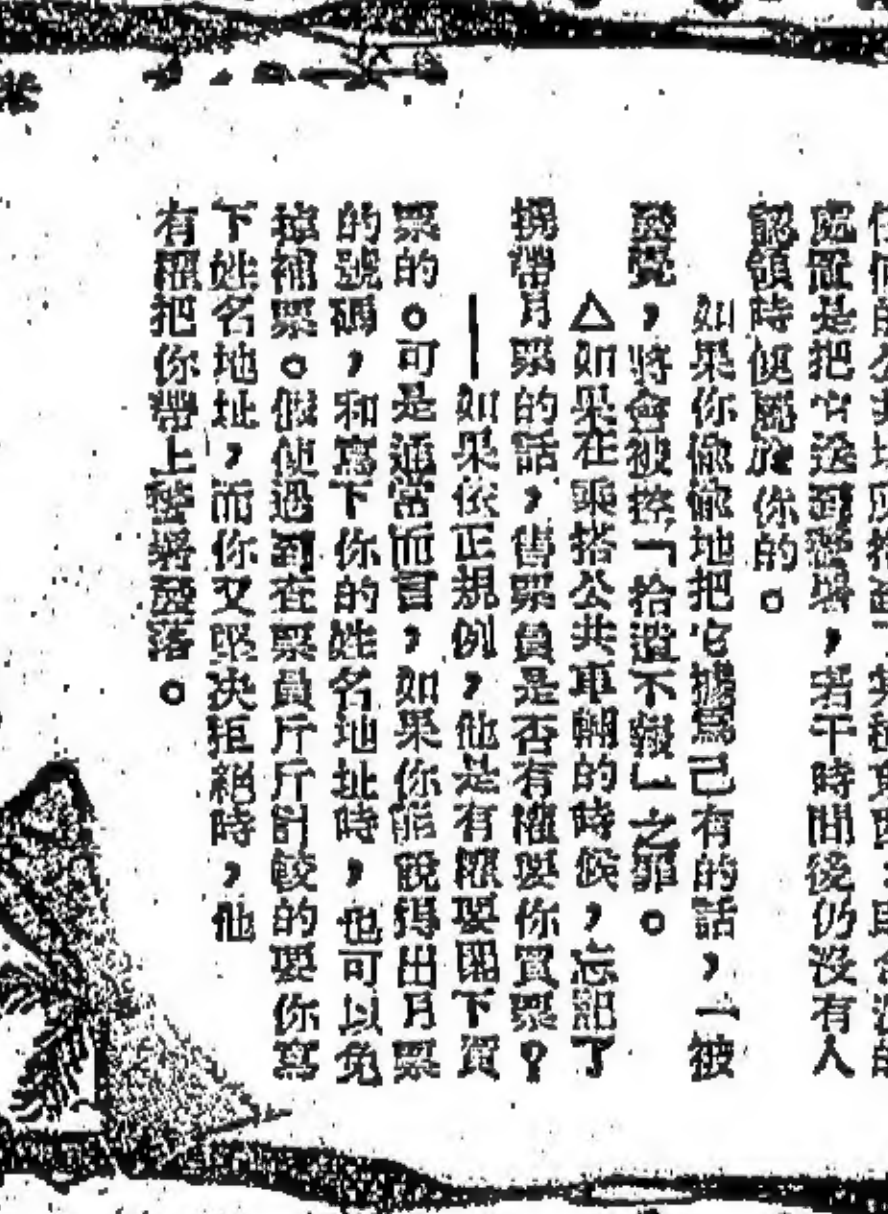 處置是把它送到警場，若干時間後仍沒有人
認領時便屬於你的。
如果你偷偷地把它據為己有的話，一被
發覺，將會被控「拾遺不報」之罪。
△如果在乘搭公共車輛的時候，忘記了
携帶月票的話，售票員是否有權要你買票？
——如果依正規例，他是有權要閣下買
票的。可是通常而言，如果你能說得出月票
的號碼，和寫下你的姓名地址時，也可以免
掉補票。假使遇到在票員斤斤計較的要你寫
下姓名地址，而你又堅決拒絕時，他
有權把你帶上警署發落。